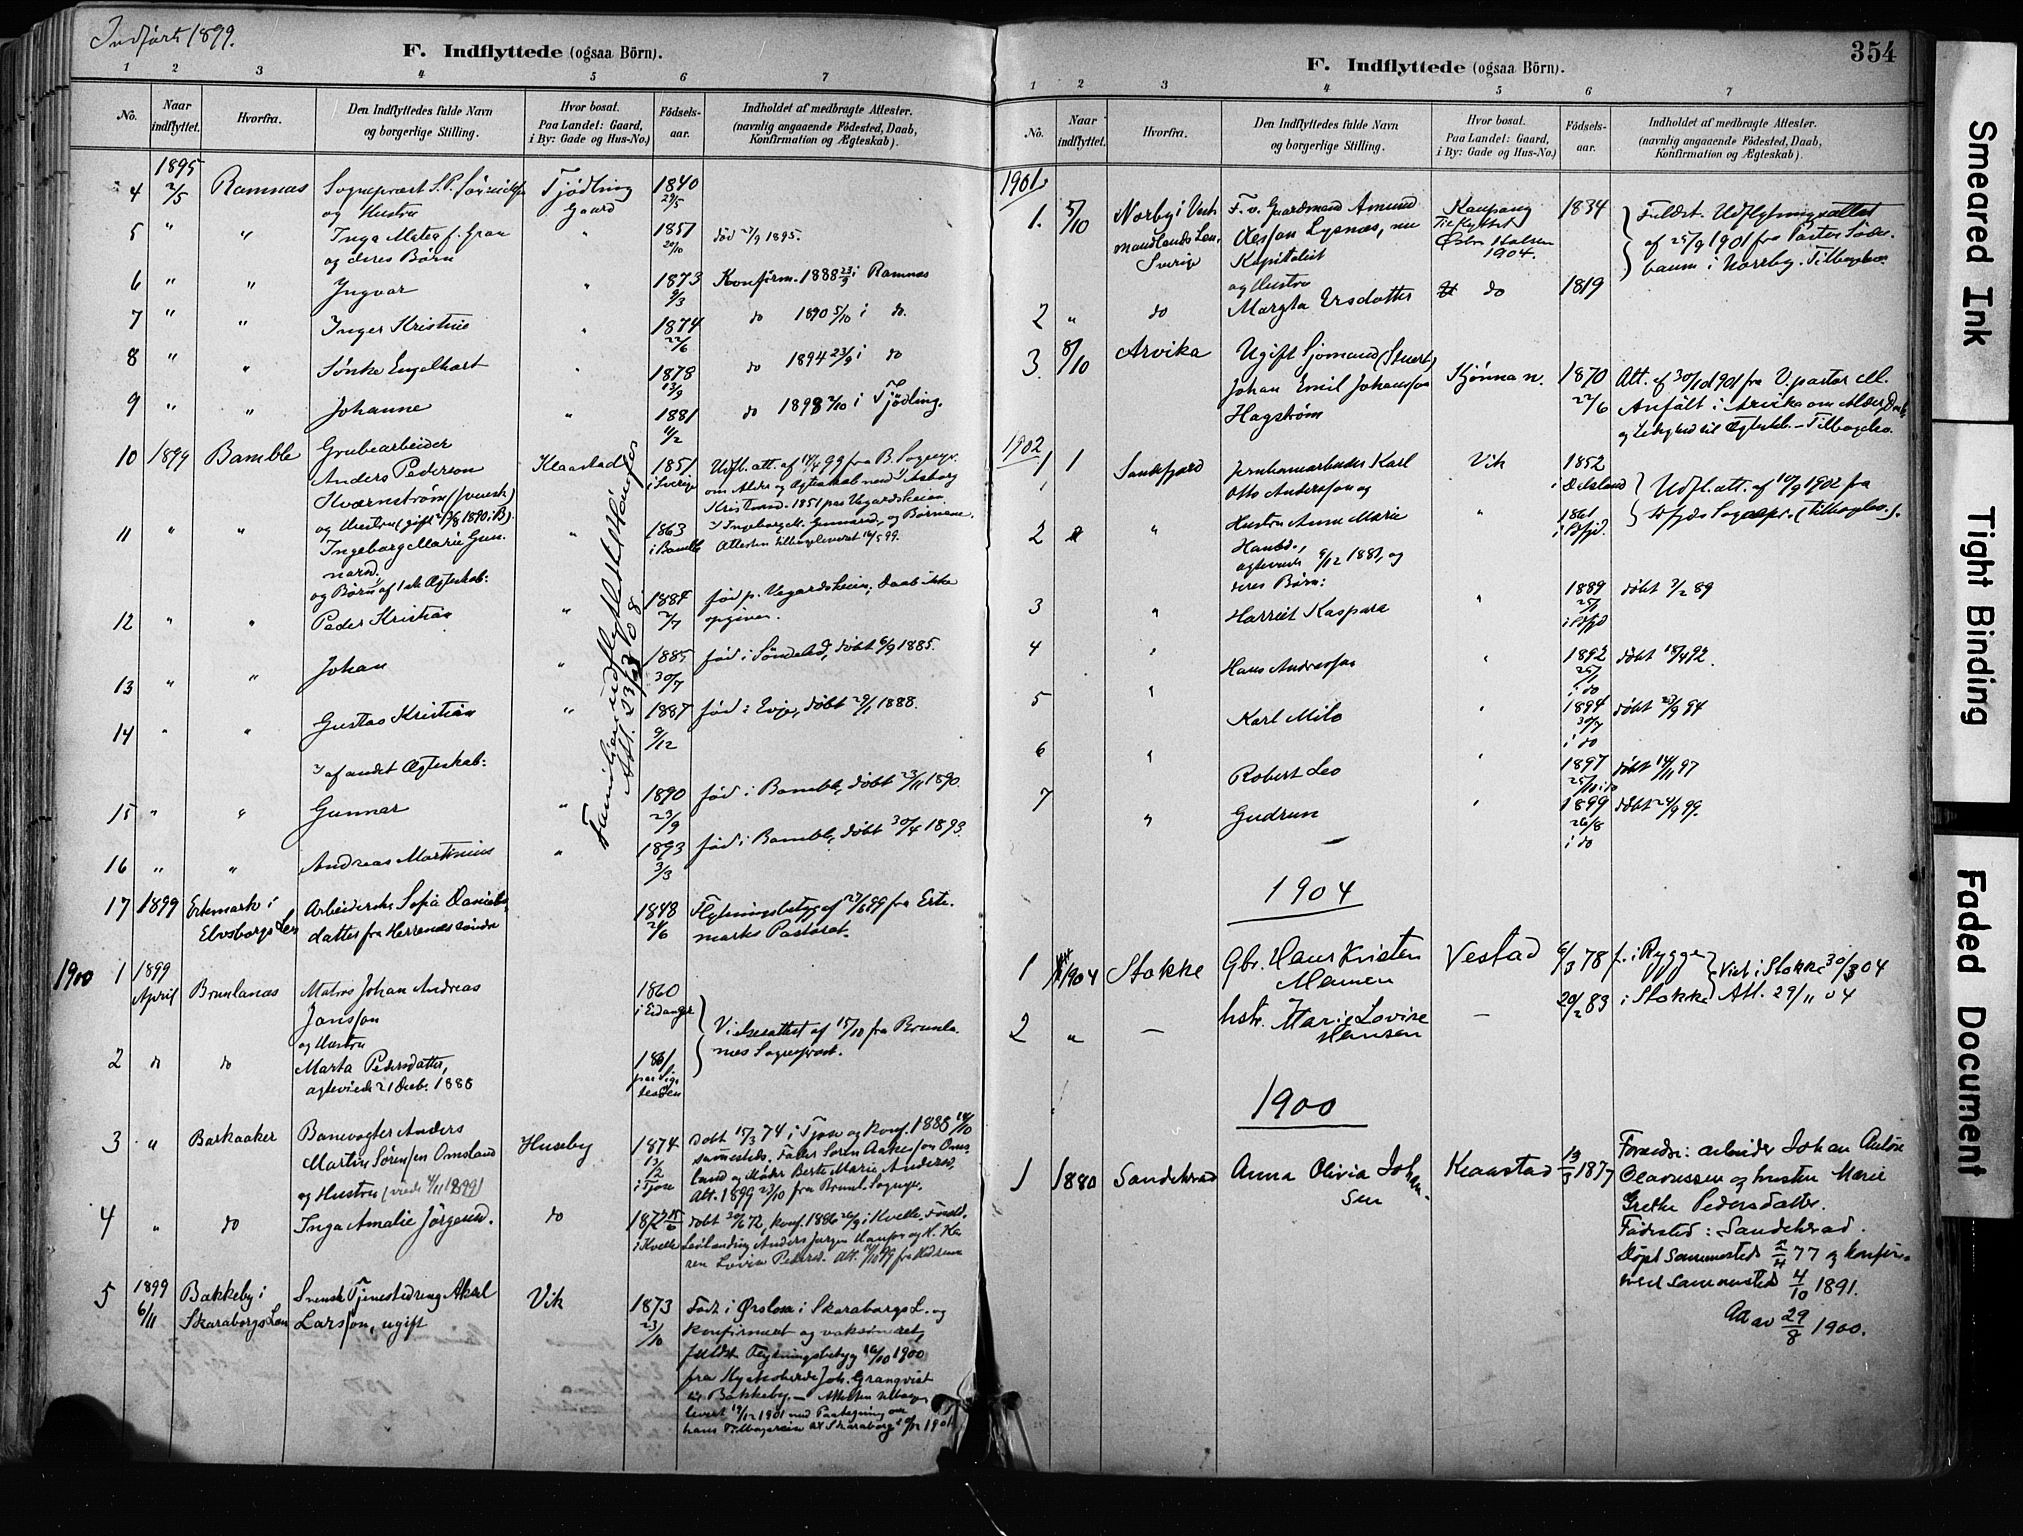 Indført 1899.
F. Indflyttede (ogsaa Börn).
1 2 3 4 5 6 7
No. Naar indflyttet. Hvorfra. Den Indflyttedes fulde Navn og borgerlige Stilling. Hvor bosat. Paa Landet: Gaard, i By: Gade og Hus-No.) Födsels-aar. Indholdet af medbragte Attester. (navnlig angaaende Födested, Daab, Konfirmation og Ægteskab).
1895
4 2/5 Ramnæs Sogneprest S. P. Tjødling 1840
og Hustru Gaard 29/5
5 " " Inga Matea f. Gran " 1851 død 27/9 1895.
og deres Børn 20/10
6 " " Ingvar " 1873 Konfirm. 1888 23/9 i Ramnæs
9/3
7 " " Inger Kristine " 1874 do 1890 5/10 i do.
22/6
8 " " Sönke Engelhart " 1878 do 1894 23/9 i do
13/9
9 " " Johanne " 1881 do 1898 2/10 i Tjödling.
11/2
10 1899 Bamble Grubearbeider
Anders Pederson Klaastad 1851 Udfl. att. af 14/4 99 fra B. Sognepr.
Kværnström (svensk) i Sverige om Alder og Ægteskab med Aasborg
og Hustru (gift 17/8 1890 i B). Kristensd. 1851 paa Vegardsheien
11 " " Ingeborg Marie Gun- " 1863 Ingeborg M. Gunnarsd. og Børnene.
narsd. i Bamble Attesten tilbageleveret 16/5 99.
og Børn af 1ste Ægteskab:
12 " " Peder Kristian " 1884 født p. Vegardsheien, Daab ikke
2/7 opgiven.
13 " " Johan " 1885 født i Söndeled, döbt 6/9 1885.
30/7
14 " " Gustav Kristian " 1887 født i Evje, döbt 29/1 1888.
9/12
af andet Ægteskab:
15 " " Gunnar " 1890 født i Bamble, döbt 23/11 1890.
23/9
16 " " Andreas Martinius " 1893 født i Bamble, döbt 30/4 1893.
3/3
Familien udflyttet til Höngfos
Att. 23/3 08.
17 1899 Ertemark i Arbeiderske Sofia Daniels- 1848 Flytningsbetyg af 27/6 99 fra Erte-
Elvsborgs Len datter fra Herrenæs söndre 24/6 marks Pastorat.
1900
1 1899 April Brunlanæs Matros Johan Andreas 1860
Jansson i Eidanger
og Hustru Vielsesattest af 15/10 fra Brunla-
2 do do Marta Pedersdatter, 1861 næs Sogneprest.
ægteviede 21 Decb. 1888
3 " Barkaaker Banevogter Anders Huseby 1874 Döbt 15/3 74 i Tjose og konf. 1888 14/10
Martin Sörensen Omsland 13/2 sammesteds. Fader Sören Aakeson Oms-
og Hustru (viede 4/11 1899) i Tjose land og Moder Berte Marie Andersd.
Att. 1899 23/10 fra Brunl. Sognepr.
4 " do Inga Amalie Jörgensd. do 1872 15/6 Döbt 30/6 72, konf. 1886 26/9 i Kvelle. Foræld.
i Kvelle Leilænding Anders Jörgen Hansen og H. Ka-
ren Lovise Pedersd. Att. 99 fra Hedrum
5 1899 6/11 Bakkeby i Svensk Tjenestedreng Aksel Vik 1873 Født i Örslösa i Skaraborgs L. og
Skaraborgs Len Larsson, ugift 23/10 konfirmeret og
fuldst. Flytningsbetyg 16/10 1900
fra Kyrkoherde Joh. Granqvist
til Bakkeby. — Attesten tilbage-
levert 19/12 1901 med Paategning om
hans Tilbagereise til Skaraborg 1901.
354
F. Indflyttede (ogsaa Börn).
1 2 3 4 5 6 7
No. Naar indflyttet. Hvorfra. Den Indflyttedes fulde Navn og borgerlige Stilling. Hvor bosat. Paa Landet: Gaard, i By: Gade og Hus-No.) Födsels-aar. Indholdet af medbragte Attester. (navnlig angaaende Födested, Daab, Konfirmation og Ægteskab).
1901
1. 5/10 Norby i Vest- F. v. Gaardmand Amund Kaupang 1834 Fuldst. Udflytningsattest
manlands Len, Olesson Lysnæs, nu Til flyttet af 25/9 1901 fra Pastor Söder-
Sverige Kapitalist Östre Halsen 1904. baum i Norrby. Tilbagelev.
og Hustru
2 " do Margta Ersdatter do 1819
3. 8/10 Arvika Ugift Sjømand (Stuert)
Johan Emil Johansson Kjönna n. 1870 Att. af 30/1 1901 fra V. pastor M.
Hagström 22/6 Anfält i Arvika om Alder, Daab
og Ledighed til Ægtesk. — Tilbagelev.
1902
1 1 Sandefjord Jernbanearbeider Karl Vik 1852
Otto Andersson og i Dalsland Udfl. att. af 10/9 1902 fra
2 " Hustru Anne Marie " 1861 Sfjds Sognepr. (tilbagelev.).
Hansd., i Sfjd.
ægteviede 9/12 1881, og
deres Børn:
3 " Harriet Kaspara " 1889 döbt 3/2 89
25/1 i Sfjd
4 " Hans Andersson " 1892 döbt 18/4 92.
25/1 i do
5 " Karl Milo " 1894 döbt 23/9 94
30/7 i do
6 " Robert Leo " 1897 döbt 14/11 97
25/10 i do
7 " Gudrun " 1899 döbt 24/9 99.
26/8 i do
1904
1 1904 Stokke Gbr. Hans Kristen Vestad 6/3 78 f. i Rygge Viet i Stokke 30/3 04
2 " — hstr. Marie Lovise — 20/2 83 i Stokke Att. 29/11 04
Hansen
1900
1 1880 Sandeherad Anna Olivia Johan- Klaastad 13/3 1877 Forældre: arbeider Johan Anton
sen Olavessen og hustru Marie
Grethe Pedersdatter.
Fødested: Sandeherad.
Döpt Sammesteds 2/4 77 og konfir-
mert sammesteds 4/10 1891.
Att av 29/8 1900.
Smeared Ink
Tight Binding
Faded Document